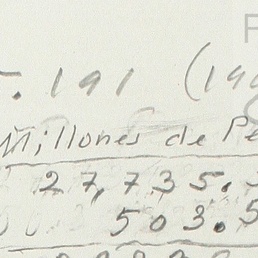 . 191 (19
Millones de Pe
27,735.
503.5